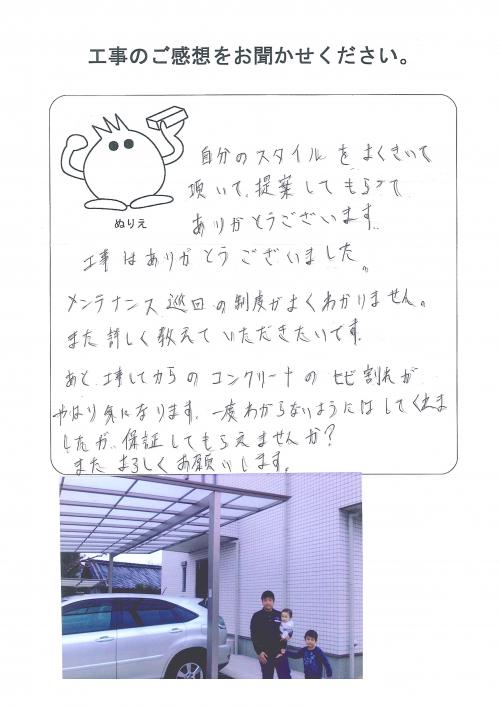 工事のご感想をお聞かせください。
自分のスタイルをよくきいて
頂いて、提案してもらって
ありがとうございます。
ぬりえ
工事はありがとうございました。
メンテナンス巡回の制度がよくわかりません。
また詳しく教えていただきたいです。
あと、工事してからのコンクリートのヒビ割れが
やはり気になります。一度わからないようにはしてくれま
したが、保証してもらえませんか?
またよろしくお願いします。